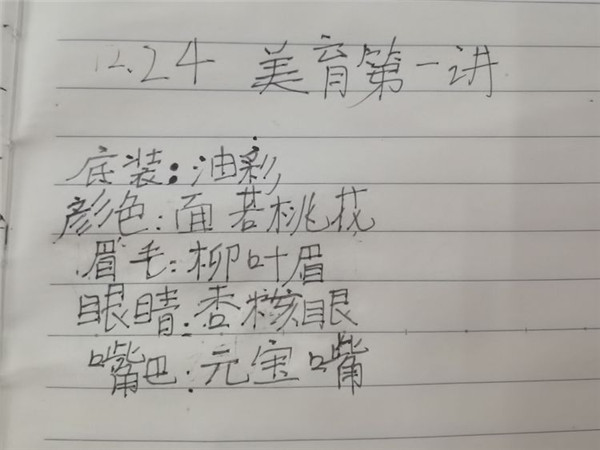 12.24 美育第一讲
底装:油彩
颜色:面若桃花
眉毛:柳叶眉
眼睛:杏核眼
嘴巴:元宝嘴